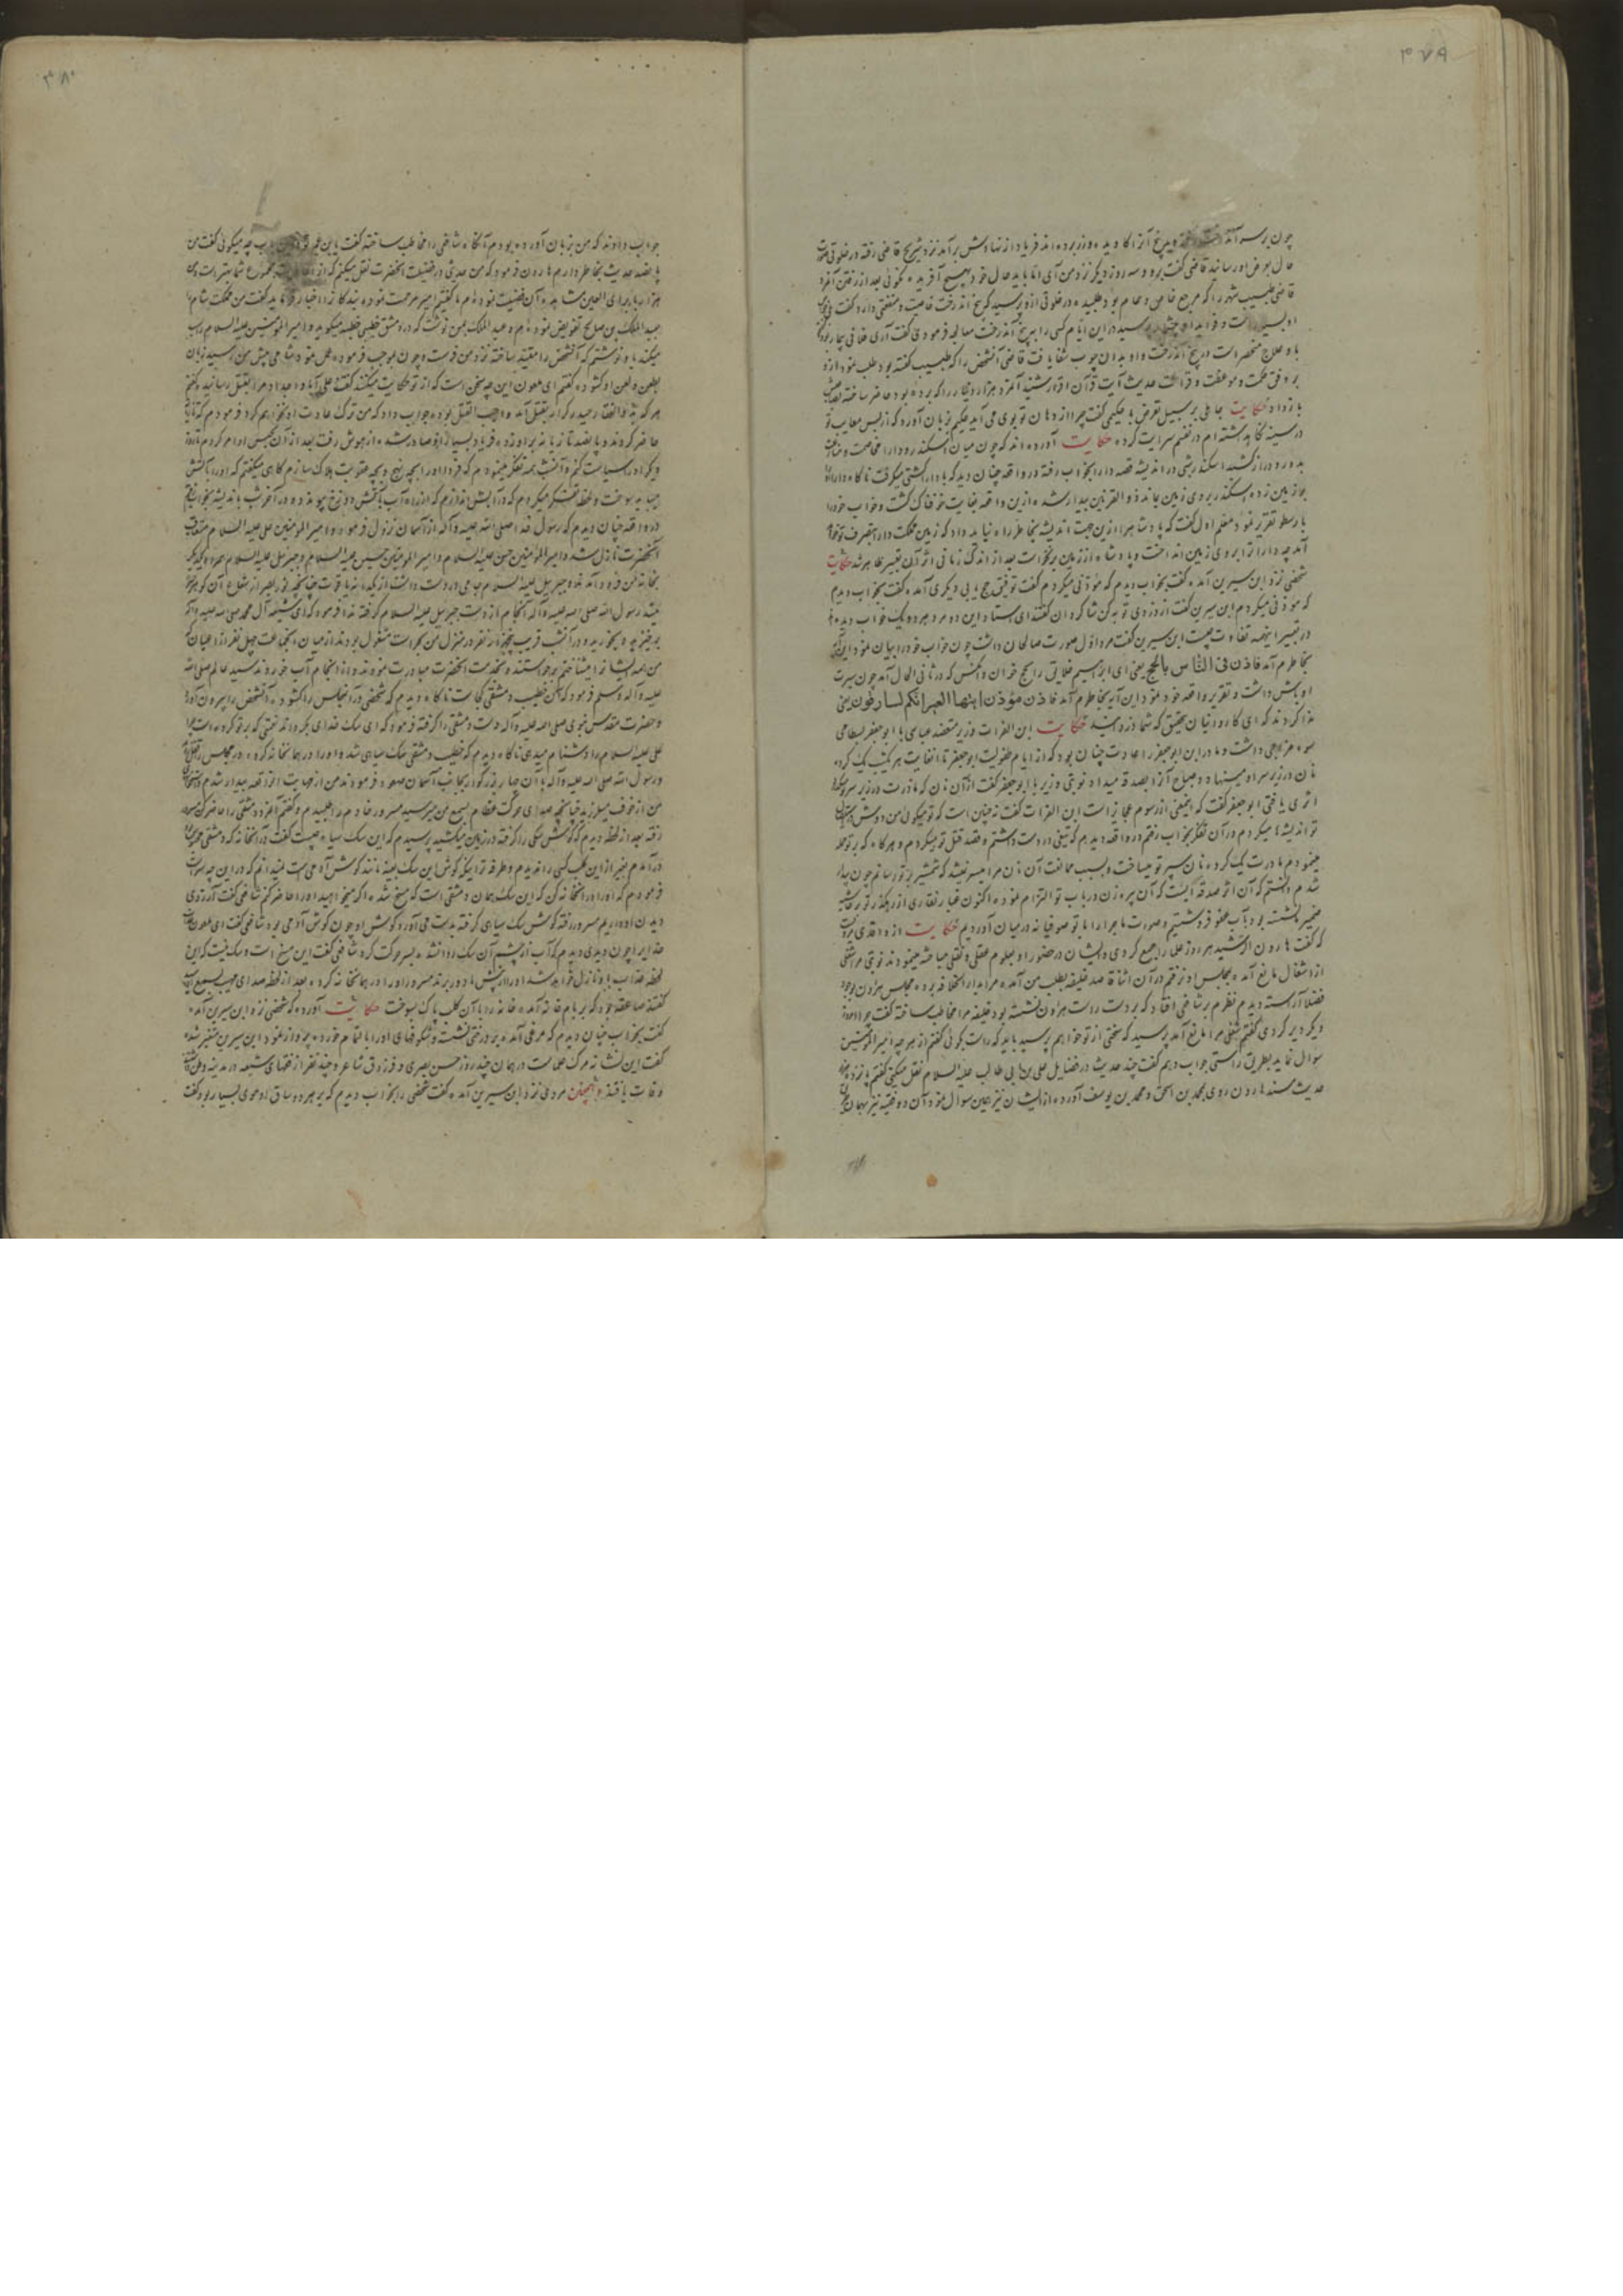 ۳۷۹
چون بر سر آمد درخت بیخ آنرا کاویده و زر برده‌اند فریاد از نهادش برآمد نزد شریح قاضی رفته در خلوتی صورت
حال بعرض او رسانید قاضی گفت برو و سه روز دیگر نزد من آی اما باید حال خود بهیچ آفریده نگوئی بعد از رفتن آنمرد
قاضی طبیب شهر را که مرجع خاص و عام بود طلبیده در خلوتی ازو پرسید که بیخ آندرخت خاصیت و منفعتی دارد گفت
او بسیار است و فواید او بیشمار پرسید در این ایام کسی را به بیخ آندرخت معالجه فرمودی گفت آری فلانی بیمار بود
با و علاج منحصر است در بیخ آندرخت و او بدان چوب شفا یافت قاضی آنشخص را که طبیب گفته بود طلب نمود ازو
بر وفق حکمت و موعظت و قرائت حدیث آیت قرآن اقرار شنید آنمرد هزار دینار را که برده بود حاضر ساخته
باز داد حکایت جاهلی بر سبیل تعرض با حکیمی گفت چرا از دهان تو بوی می آید حکیم بزبان آورد که از بس معایب تو
در سینه نگاه داشته‌ام در نفسم سرایت کرده حکایت آورده‌اند که چون میان اسکندر و دارا مخاصمت و منازعت
بدور و دراز کشید اسکندر شبی در اندیشه قصه دارا بخواب رفته در واقعه چنان دید که با دارا کشتی میگرفت ناگاه دارا او را
بر زمین زده اسکندر بروی زمین بماند ذوالقرنین بیدار شده ازین واقعه بغایت خوفناک گشت و خواب خود را
بارسطو تقریر نمود معلم اول گفت که پادشاه را ازین جهت اندیشه بخاطر راه نباید داد که زمین مملکت دارا بتصرف تو خواهد
آمد چه دارا ترا بروی زمین انداخت و پادشاه از زمین برخواست بعد از اندک زمانی اثر آن تعبیر ظاهر شد حکایت
شخصی نزد ابن سیرین آمده گفت بخواب دیدم که مؤذنی میکردم گفت توفیق حج یابی دیگری آمده گفت بخواب دیدم
که مؤذنی میکردم ابن سیرین گفت از دزدی توبه کن شاگردان گفتند ای استاد این دو مرد هر دو یک خواب دیده‌اند
در تعبیر اینهمه تفاوت چیست ابن سیرین گفت مرد اول صورت صالحان داشت چون خواب خود را بیان نمود این آیه
بخاطرم آمد فاذن فی النّاس بالحج یعنی ای ابراهیم خلایق را بحج خوان و آنکس که در ثانی الحال آمد چون سیرت
اوباش داشت و تقریر واقعه خود نمود این آیه بخاطرم آمد فاذن مؤذن ایتها العیر انکم لسارقون یعنی
ندا کردند که ای کاروانیان بتحقیق که شما دزدانید حکایت ابن الفرات وزیر مقتضد عباسی با ابوجعفر بسطامی
سوء مزاجی داشت و مادر این ابوجعفر را عادت چنان بود که از ایام طفولیت ابوجعفر تا انغایت هر شب یک گرده
نان در زیر سر او مینهاد و صباح آنرا بصدقه میداد نوبتی وزیر با ابوجعفر گفت از آن نان که مادرت در زیر سر تو
اثری یافتی ابوجعفر گفت که اینمعنی از رسوم عجایز است ابن الفرات گفت نه چنین است که تو میگوئی من دوش در استیصال
تو اندیشها میکردم در آن تفکر بخواب رفتم در واقعه دیدم که تیغی در دست داشتم و قصد قتل تو میکردم و هرگاه که بر تو حمله
مینمودم مادرت یک گرده نان سپر تو میساخت و بسبب ممانعت آن نان مرا میسر نمیشد که شمشیر بتو رسانم چون بیدار
شدم دانستم که آن اثر صدقه ایست که آن پیره زن در باب تو التزام نموده اکنون غبار نقاری از رهگذر تو بر حاشیه
ضمیر نشسته بود بآب عفو فروشستیم و صورت ماجرا را با تو صوفیانه در میان آوردیم حکایت از واقدی مرویست
که گفت هارون الرشید هر روز علما را جمع کردی و ایشان در حضور او بعلوم عقلی و نقلی مباحثه مینمودند نوبتی مرا شغلی
از اشغال مانع آمده بمجلس او نرفتم در آن اثنا قاصد خلیفه بطلب من آمده مرا بدار الخلافه برد مجلس هارون بوجود
فضلا آراسته دیدم نظرم بر شافعی افتاد که بر دست راست هارون نشسته بود خلیفه مرا مخاطب ساخته گفت چرا امروز
دیر کردی گفتم شغلی مرا مانع آمد پرسید که سخنی از تو خواهم پرسید باید که راست بگوئی گفتم از هر چه امیر المؤمنین
سوال نماید بطریق راستی جواب دهم گفت چند حدیث در فضایل علی بن ابی طالب علیه السلام نقل میکنی گفتم پانزده هزار
حدیث مسند هارون روی بمحمد بن اسحق و محمد بن یوسف آورده از ایشان نیز همین سوال نمود آن دو فقیه نیز بهمان
۳۸۰
جواب دادند که من بزبان آورده بودم آنگاه شافعی را مخاطب ساخته گفت یابن عم تو درین باب چه میگوئی گفت من
پانصد حدیث بخاطر دارم هارون فرمود که من حدیثی در فضیلت آنحضرت نقل میکنم که از احادیث مجموع شما بهتر است و من
هزار بار برای العین مشاهده آن فضیلت نموده‌ام ما گفتیم امیر مرحمت نموده بندگانرا اخبار فرماید گفت من مملکت شام
بعبد الملک بن صالح تفویض نموده‌ام و عبد الملک بمن نوشت که در دمشق خطیبی خطبه میگوید و امیر المؤمنین علیه السلام را سب
میکند باو نوشتم که آنشخص را مقید ساخته نزد من فرست و چون بموجب فرموده عمل نمود شامی پیش من رسید زبان
بطعن و لعن او گشوده گفتم ای ملعون این چه سخن است که از تو حکایت میکنند گفت علی آبا و اجداد مرا بقتل رسانیده گفتم
هر که به ذوالفقار حیدر کرار بقتل آمد واجب القتل بوده جواب داد که من ترک عادت او نخواهم کرد فرمودم که تازیانه
حاضر کردند و پانصد تازیانه بر او زده فریاد بسیار ازو صادر شده از هوش رفت بعد از آن بحبس او امر کردم تا روز
دیگر او را سیاست کنم و آنشب همه تفکر مینمودم که فردا او را بچه رنج و بچه عقوبت هلاک سازم گاهی میگفتم که او را بآتش
میباید سوخت و لحظه تفکر میکردم که در آبش اندازم که از راه آب بآتش دوزخ پیوندد و در آخر شب باندیشه بخواب رفتم
در واقعه چنان دیدم که رسول خدا صلی الله علیه و آله از آسمان نزول فرمود و امیر المؤمنین علی علیه السلام متعاقب
آنحضرت نازل شد و امیر المؤمنین حسن علیه السلام و امیر المؤمنین حسین علیه السلام و جبرئیل علیه السلام همراه یکدیگر
بخانه من فرود آمدند و جبرئیل علیه السلام جامی در دست داشت از یکدانه یاقوت چنانچه نور بصر از شعاع آن خیره
میشد رسول الله صلی الله علیه و آله آنجام از دست جبرئیل علیه السلام گرفته ندا فرمود که ای شیعه آل محمد صلی الله علیه و آله
برخیزید و بخورید و در آنشب قریب پنجهزار نفر در منزل من بحراست مشغول بودند از میان آنجماعت چهل نفر از اعیان که
من همه ایشانرا میشناختم برخواستند و بخدمت آنحضرت مبادرت نمودند و از آنجام آب خوردند سید عالم صلی الله
علیه و آله و سلم فرمود که آن خطیب دمشقی کجاست ناگاه دیدم که شخصی در آنمجلس را گشوده آنشخص را بیرون آورد
و حضرت مقدس نبوی صلی الله علیه و آله دست دمشقی را گرفته فرمود که ای سک خدای بگرداند نعمتی که بر تو کرده است چرا
علی علیه السلام را دشنام میدهی ناگاه دیدم که خطیب دمشقی سک سیاهی شد و او را در همانخانه کرده در مجلس را قفل
و رسول الله صلی الله علیه و آله با آن چهار بزرگوار بجانب آسمان صعود فرمودند من از مهابت آنواقعه بیدار شدم
من از خوف میلرزید چنانچه صدای حرکت عظام بسمع من میرسید مسرور خادم را طلبیدم و گفتم آنمرد دمشقی را حاضر کن مسرور
رفته بعد از لحظه دیدم که گوش سکی را گرفته در زمین میکشد پرسیدم که این سک سیاه چیست گفت در آنخانه که دمشقی محبوس بود
در آمدم بغیر از این کلب کسی را ندیدم و طرفه تر اینکه گوش این سک بعینه مانند گوش آدمی است نمیدانم که در این چه سر است
فرمودم که او را در آنخانه کن که این سک همان دمشقی است که مسخ شده اگر میخواهید او را حاضر کنم شافعی گفت آرزوی
دیدن او داریم مسرور رفته گوش سک سیاهی گرفته بدست می آورد گوش او چون گوش آدمی بود شافعی گفت ای ملعون عذاب
خدایرا چون دیدی دیدم که آب از چشم آن سک روان شد بسر حرکت کرد شافعی گفت این مسخ است و شک نیست که این
لحظه عذاب باو نازل خواهد شد او را از پیش ما دور برند مسرور او را در همانخانه کرده بعد از لحظه صدای مهیب بسمع
گفتند صاعقه بود که بر بام خانه آمده خانه را با آن کلب پاک بسوخت حکایت آورده که شخصی نزد ابن سیرین آمده
گفت بخواب چنان دیدم که مرغی آمده بر درختی نشست و شکوفهای او را بالتمام خورده پرواز نمود ابن سیرین متغیر شده
گفت این نشانه مرگ علماست در همان چند روز حسن بصری و فرزدق شاعر و چند نفر از فقهای شیعه در مدینه
وفات یافتند و همچنین مردی نزد ابن سیرین آمده گفت شخصی را بخواب دیدم که بر هر دو ساق او موی بسیار بود گفت